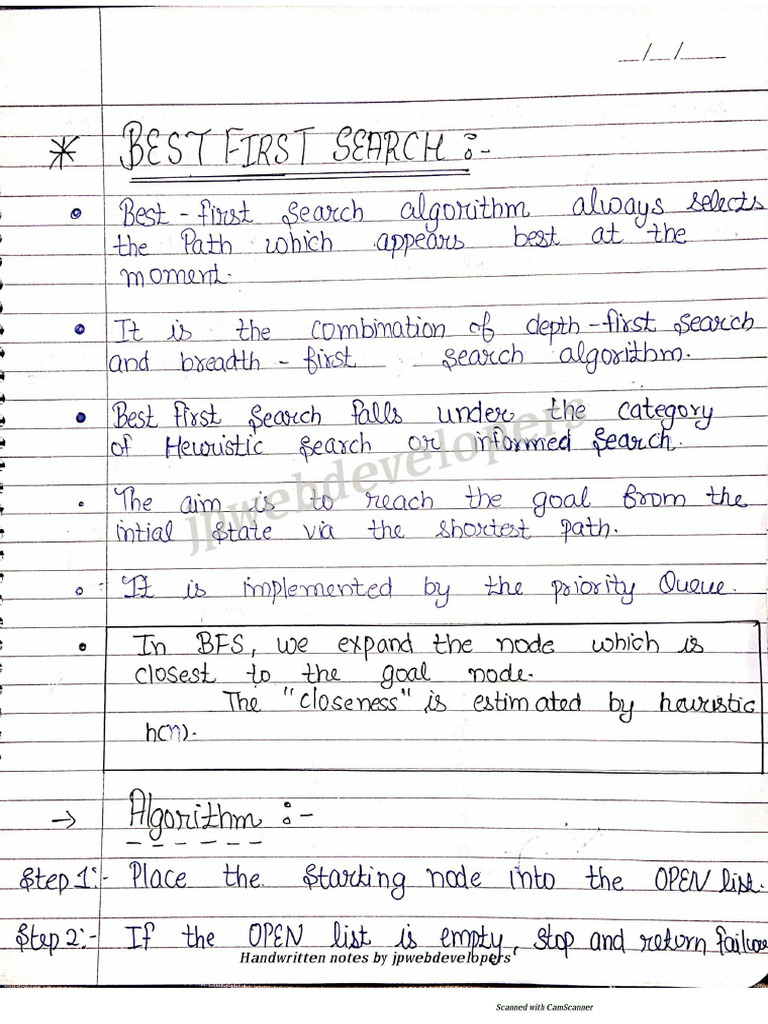 _/_/__
* BEST FIRST SEARCH :-
• Best-first search algorithm always selects
the Path which appears best at the
moment.
• It is the combination of depth-first search
and breadth-first search algorithm.
• Best first search falls under the category
of Heuristic search or informed search.
• The aim is to reach the goal from the
intial state via the shortest path.
• It is implemented by the priority Queue.
• In BFS, we expand the node which is
closest to the goal node.
The "closeness" is estimated by heuristic
h(n).
jpwebdevelopers
→ Algorithm :-
Step 1:- Place the starting node into the OPEN list.
Step 2:- If the OPEN list is empty, stop and return failure
Handwritten notes by jpwebdevelopers
Scanned with CamScanner